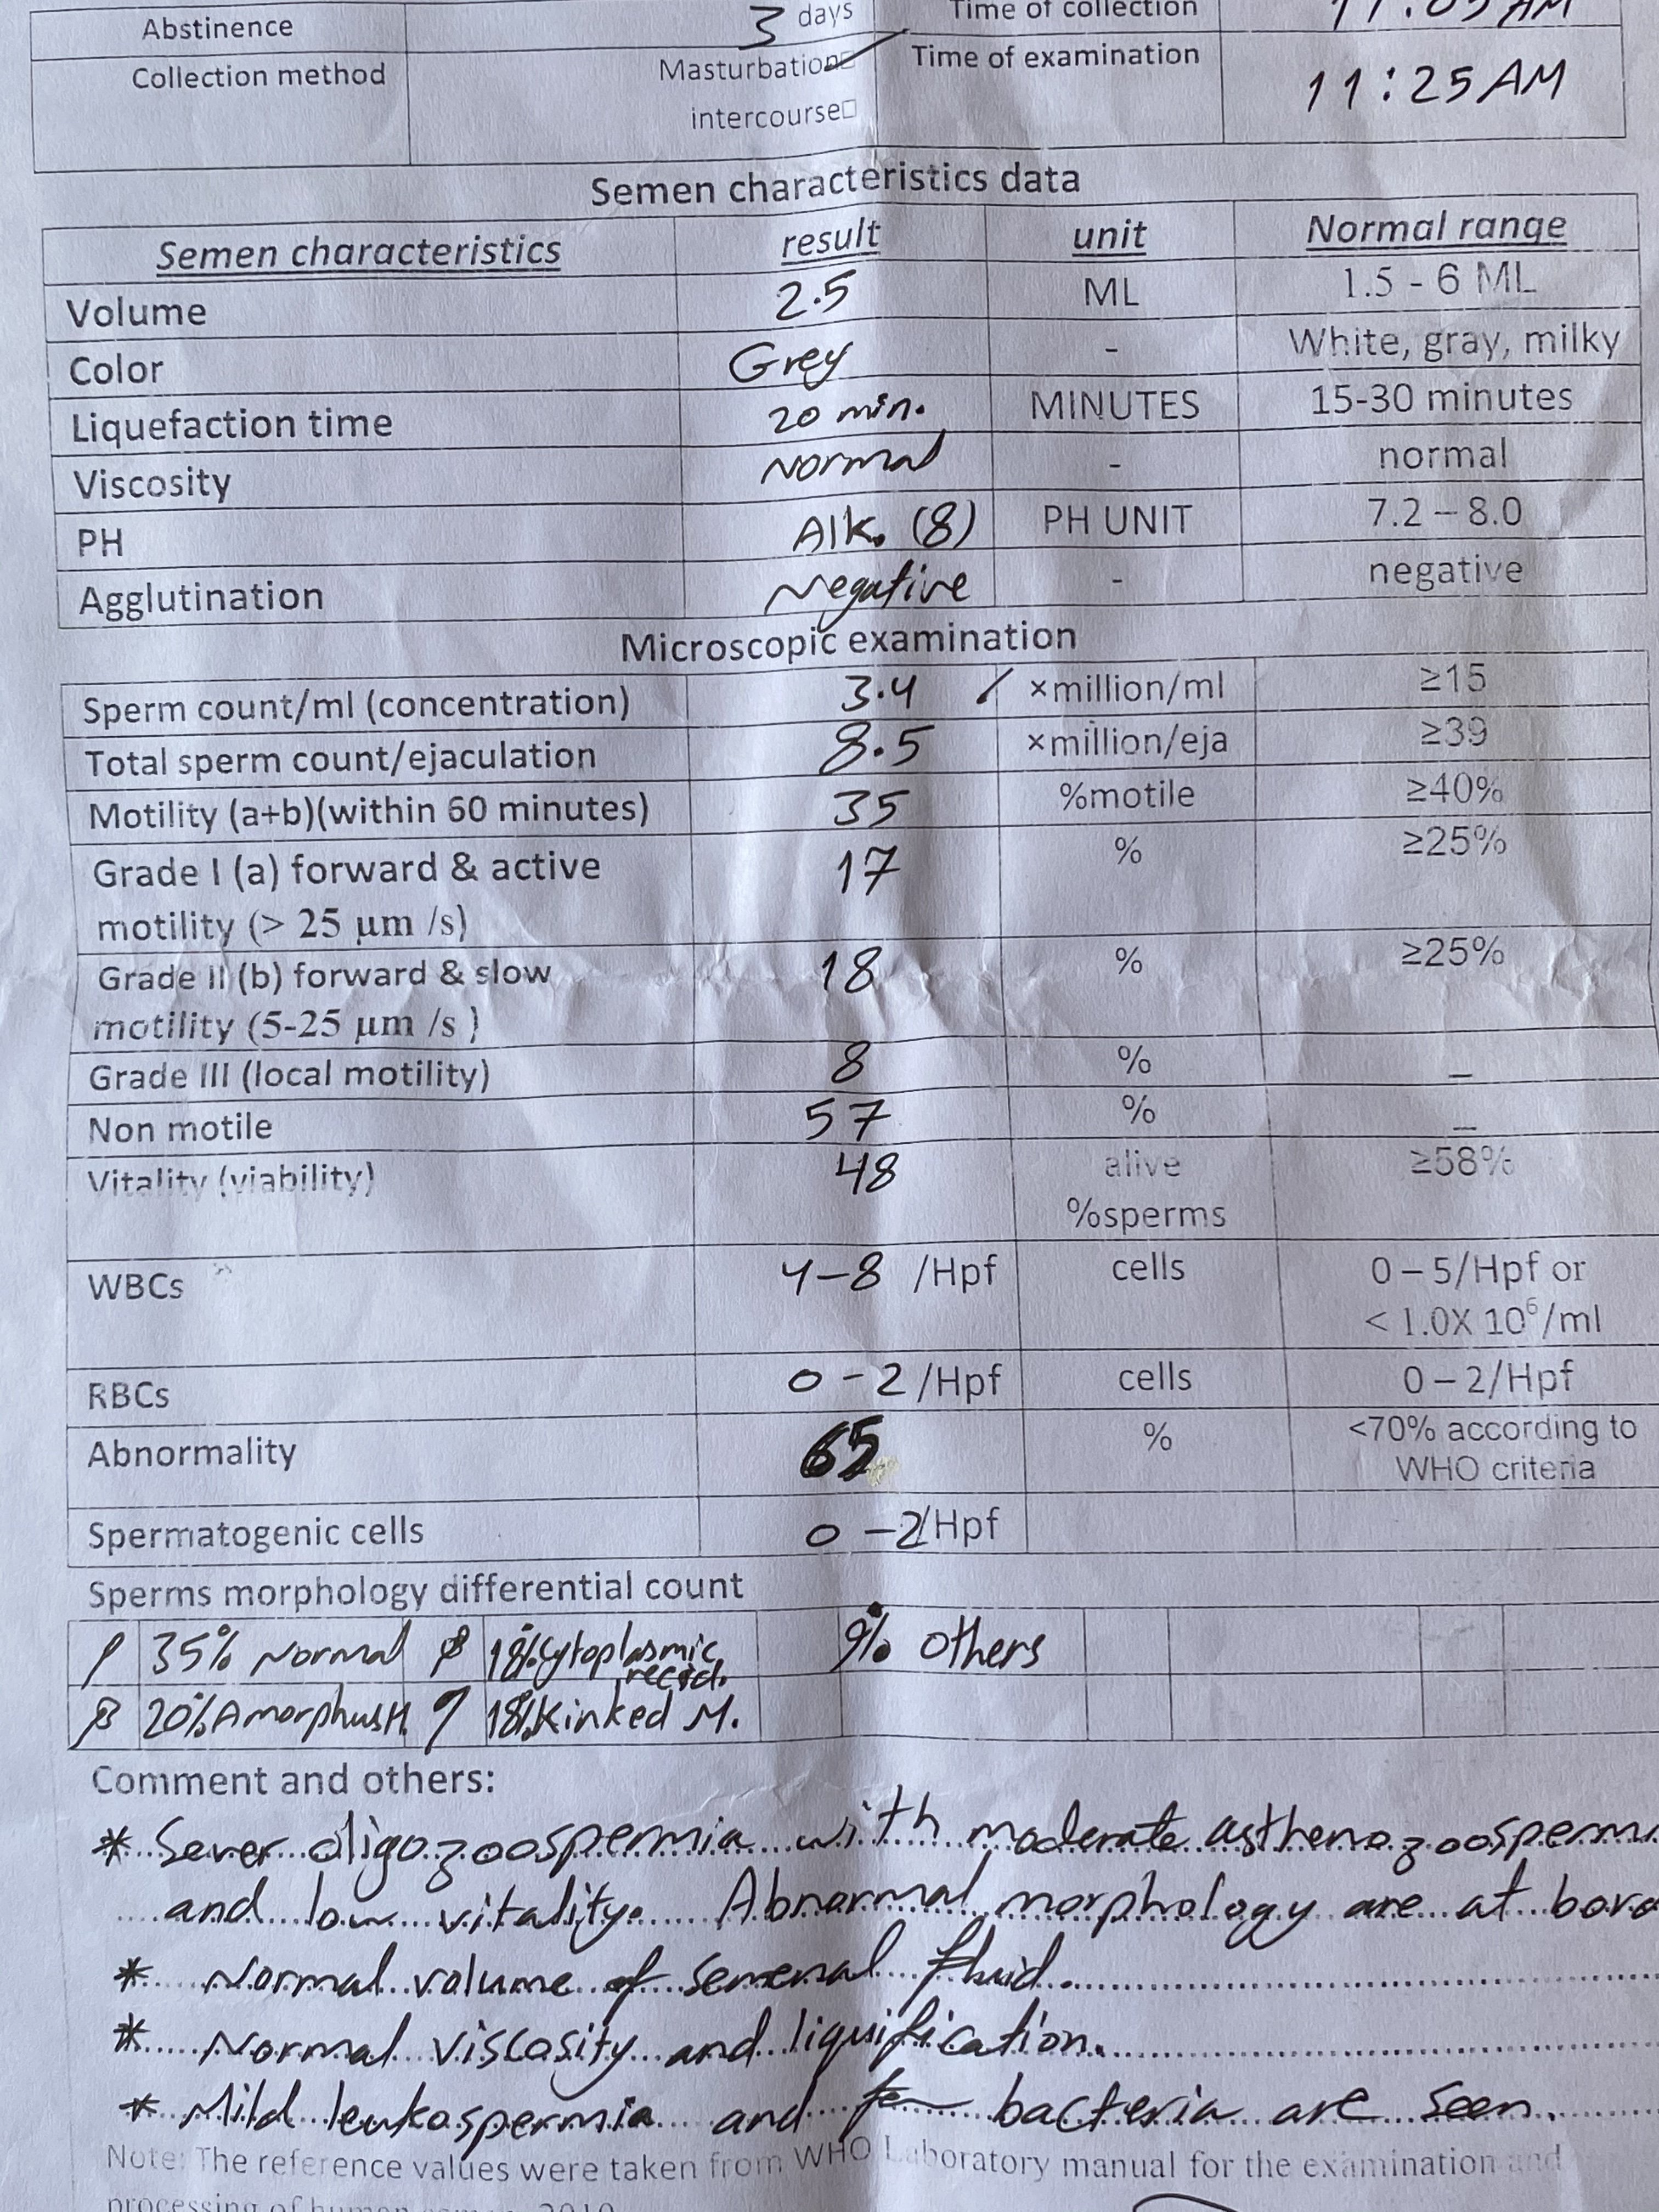 Abstinence 3 days Time of collection 11:05 AM
Collection method Masturbation□ Time of examination 11:25 AM
intercourse□
Semen characteristics data
Semen characteristics result unit Normal range
Volume 2.5 ML 1.5 - 6 ML
Color Grey - White, gray, milky
Liquefaction time 20 min. MINUTES 15-30 minutes
Viscosity Normal - normal
PH Alk. (8) PH UNIT 7.2 – 8.0
Agglutination Negative - negative
Microscopic examination
Sperm count/ml (concentration) 3.4 ×million/ml ≥15
Total sperm count/ejaculation 8.5 ×million/eja ≥39
Motility (a+b)(within 60 minutes) 35 %motile ≥40%
Grade I (a) forward & active 17 % ≥25%
motility (> 25 µm /s)
Grade II (b) forward & slow 18 % ≥25%
motility (5-25 µm /s )
Grade III (local motility) 8 % –
Non motile 57 % –
Vitality (viability) 48 alive ≥58%
%sperms
WBCs 4–8 /Hpf cells 0 – 5/Hpf or
< 1.0X 10⁶/ml
RBCs 0 - 2 /Hpf cells 0 – 2/Hpf
Abnormality 65 % <70% according to
WHO criteria
Spermatogenic cells 0 –2/Hpf
Sperms morphology differential count
35% Normal 18% Cytoplasmic 9% others
20% Amorphus H. 18% Kinked M.
Comment and others:
* Sever oligozoospermia with moderate asthenozoospermi
and low vitality. Abnormal morphology are at bord
* Normal volume of semenal fluid.
* Normal viscosity and liquification.
* Mild leukospermia and few bacteria are seen.
Note: The reference values were taken from WHO Laboratory manual for the examination and
processing of human semen, 2010